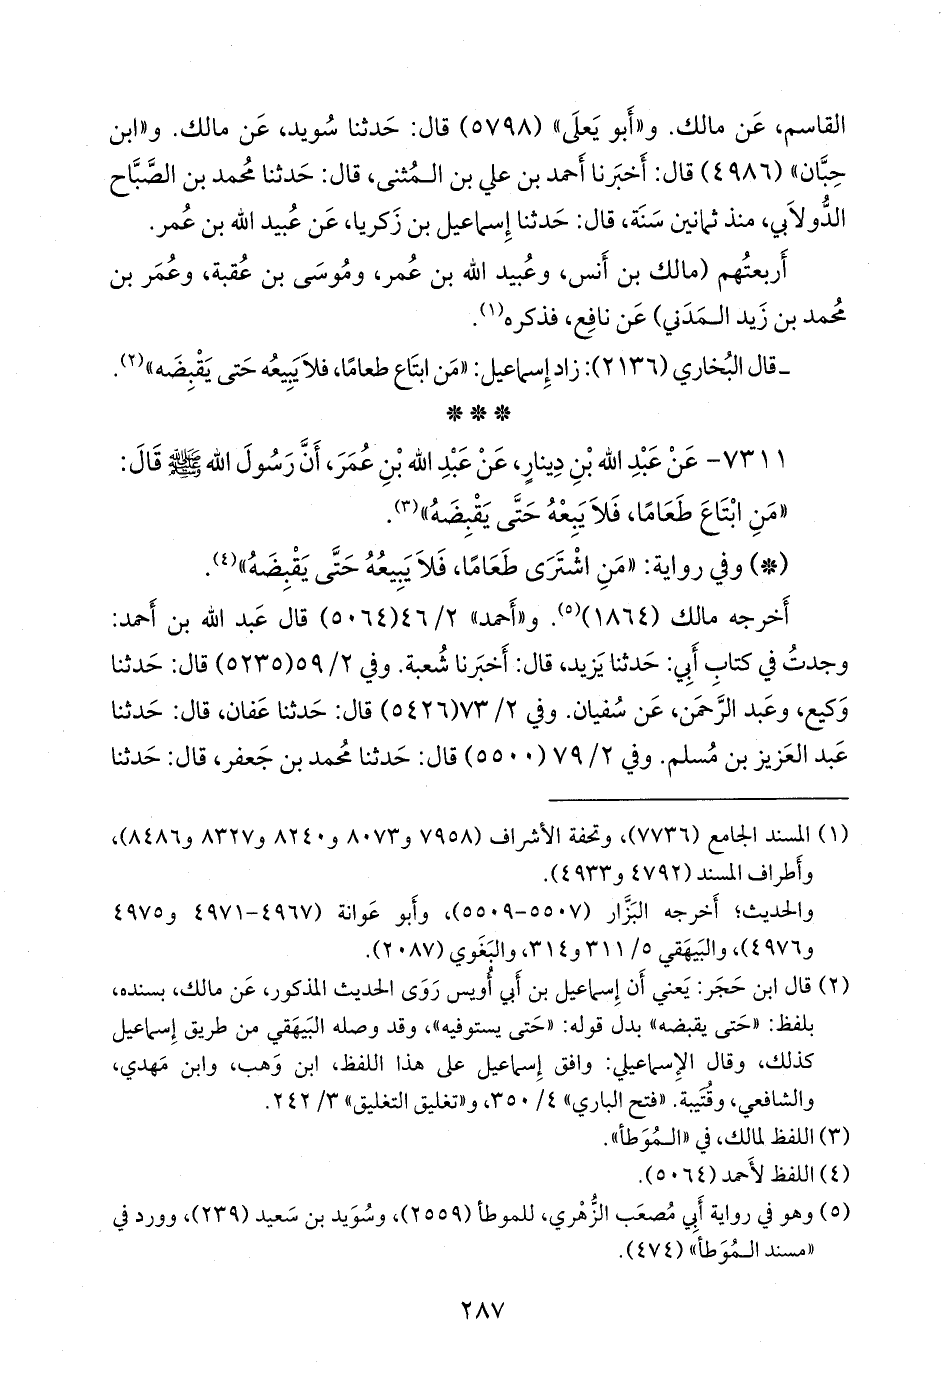 القاسم، عَن مالك. و«أَبو يَعلَى» (٥٧٩٨) قال: حَدثنا سُويد، عَن مالك. و«ابن
حِبَّان» (٤٩٨٦) قال: أَخبَرنا أَحمد بن علي بن الـمُثنى، قال: حَدثنا مُحمد بن الصَّبَّاح
الدُّولاَبي، منذ ثمانين سَنَة، قال: حَدثنا إِسماعيل بن زَكريا، عَن عُبيد الله بن عُمر.
أَربعتُهم (مالك بن أَنس، وعُبيد الله بن عُمر، ومُوسَى بن عُقبة، وعُمَر بن
مُحمد بن زَيد الـمَدَني) عَن نافِع، فذكره(١).
ـ قال البُخاري (٢١٣٦): زاد إِسماعيل: «مَن ابتَاع طعامًا، فلاَ يَبِيعُه حَتى يَقْبِضَه»(٢).
* * *
٧٣١١- عَنْ عَبْدِ الله بْنِ دِينارٍ، عَنْ عَبْدِ الله بْنِ عُمَرَ، أَنَّ رَسُولَ الله ﷺ قَالَ:
«مَنِ ابْتَاعَ طَعَامًا، فَلاَ يَبِعْهُ حَتَّى يَقْبِضَهُ»(٣).
(*) وفي رواية: «مَنِ اشْتَرَى طَعَامًا، فَلاَ يَبِيعُهُ حَتَّى يَقْبِضَهُ»(٤).
أَخرجه مالك (١٨٦٤)(٥). و«أَحمد» ٢/ ٤٦(٥٠٦٤) قال عَبد الله بن أَحمد:
وجدتُ في كتابِ أَبي: حَدثنا يَزيد، قال: أَخبَرنا شُعبة. وفي ٢/ ٥٩(٥٢٣٥) قال: حَدثنا
وَكيع، وعَبد الرَّحمَن، عَن سُفيان. وفي ٢/ ٧٣(٥٤٢٦) قال: حَدثنا عَفان، قال: حَدثنا
عَبد العَزيز بن مُسلم. وفي ٢/ ٧٩ (٥٥٠٠) قال: حَدثنا مُحمد بن جَعفر، قال: حَدثنا
(١) المسند الجامع (٧٧٣٦)، وتحفة الأشراف (٧٩٥٨ و٨٠٧٣ و٨٢٤٠ و٨٣٢٧ و٨٤٨٦)،
وأَطراف المسند (٤٧٩٢ و٤٩٣٣).
والحديث؛ أَخرجه البَزَّار (٥٥٠٧-٥٥٠٩)، وأَبو عَوانة (٤٩٦٧-٤٩٧١ و٤٩٧٥
و٤٩٧٦)، والبَيهَقي ٥/ ٣١١ و٣١٤، والبَغَوي (٢٠٨٧).
(٢) قال ابن حَجَر: يَعني أَن إِسماعيل بن أَبي أُويس رَوَى الحديث المذكور، عَن مالك، بسنده،
بلفظ: «حَتى يقبضه» بدل قوله: «حَتى يستوفيه»، وقد وصله البَيهَقي من طريق إِسماعيل
كذلك، وقال الإِسماعيلي: وافق إِسماعيل على هذا اللفظ، ابن وَهب، وابن مَهدي،
والشافعي، وقُتَيبة. «فتح الباري» ٤/ ٣٥٠، و«تغليق التغليق» ٣/ ٢٤٢.
(٣) اللفظ لمالك، في «الـمُوَطأ».
(٤) اللفظ لأَحمد (٥٠٦٤).
(٥) وهو في رواية أَبي مُصعَب الزُّهْري، للموطأ (٢٥٥٩)، وسُوَيد بن سَعيد (٢٣٩)، وورد في
«مسند الـمُوَطأ» (٤٧٤).
٢٨٧